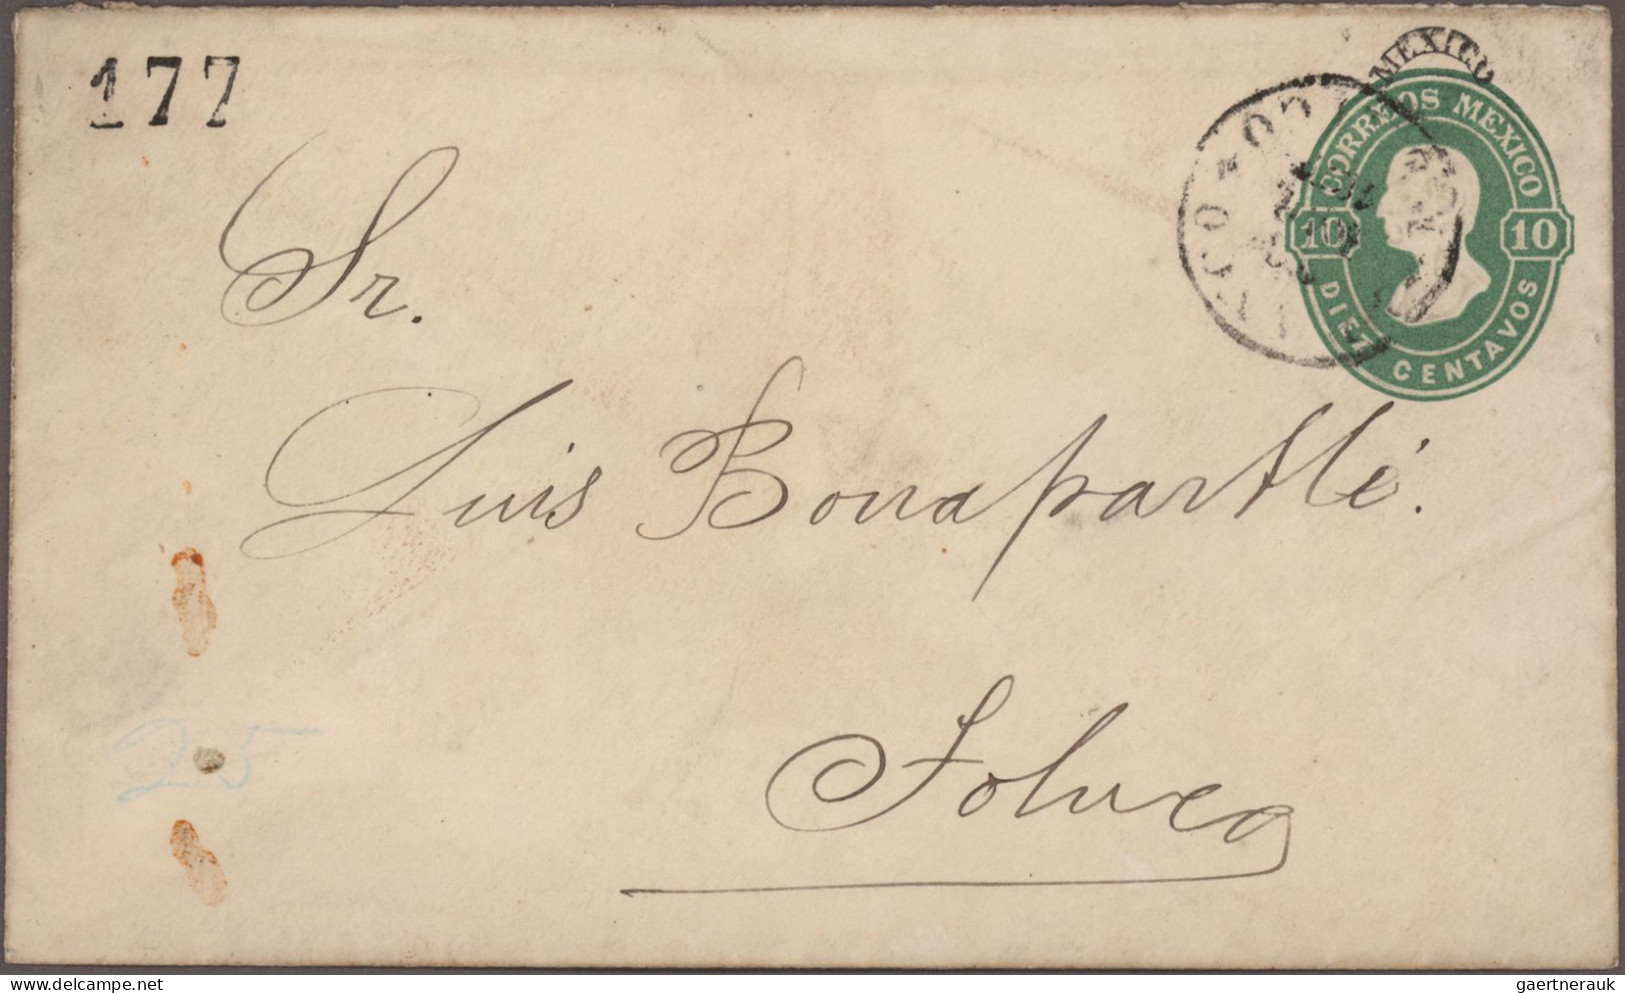 177
MEXICO
CORREOS MEXICO
10 10
DIEZ CENTAVOS
Sr.
Luis Bonapartlé.
Toluca
25
delcampe.net
gaertnerauk